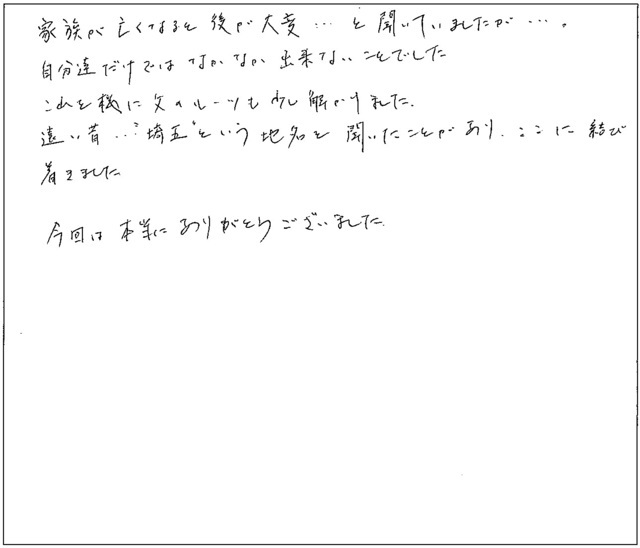 家族が亡くなると後が大変…と聞いていましたが…。
自分達だけではなかなか出来ないことでした
これを機に父のルーツも少し解かりました.
遠い昔…"埼玉"という地名を聞いたことがあり、ここに結び
着きました
今回は本当にありがとうございました.